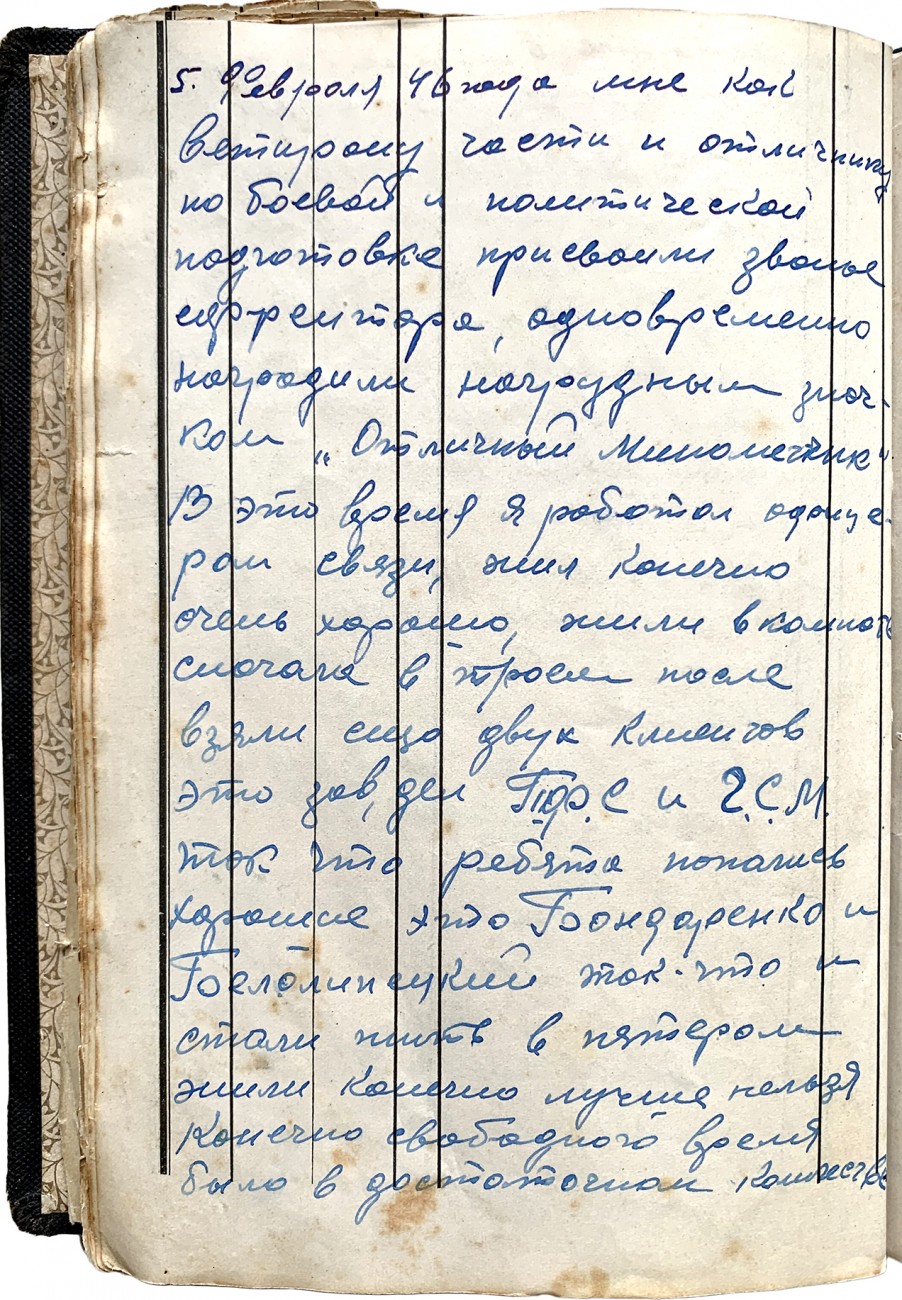 5. Февраля 46 года мне как
ветирану части и отличнику
по боевой и политической
подготовке присвоили званье
ефрейтора, одновременно
наградили нагрудным знач-
ком „Отличный Минометчик"
В это время я работал офице-
ром связи, жил конечно
очень хорошо, жили в комнате
сначала в троем после
взяли ещо двух клиентов
это зав, дел П.Ф.С и Г.С.М.
так что ребята попались
хорошие это Бондаренко и
Белолипецкий так-что и
стали жить в пятером
жили конечно лучше нельзя
Конечно свободного время
было в достаточном количестве